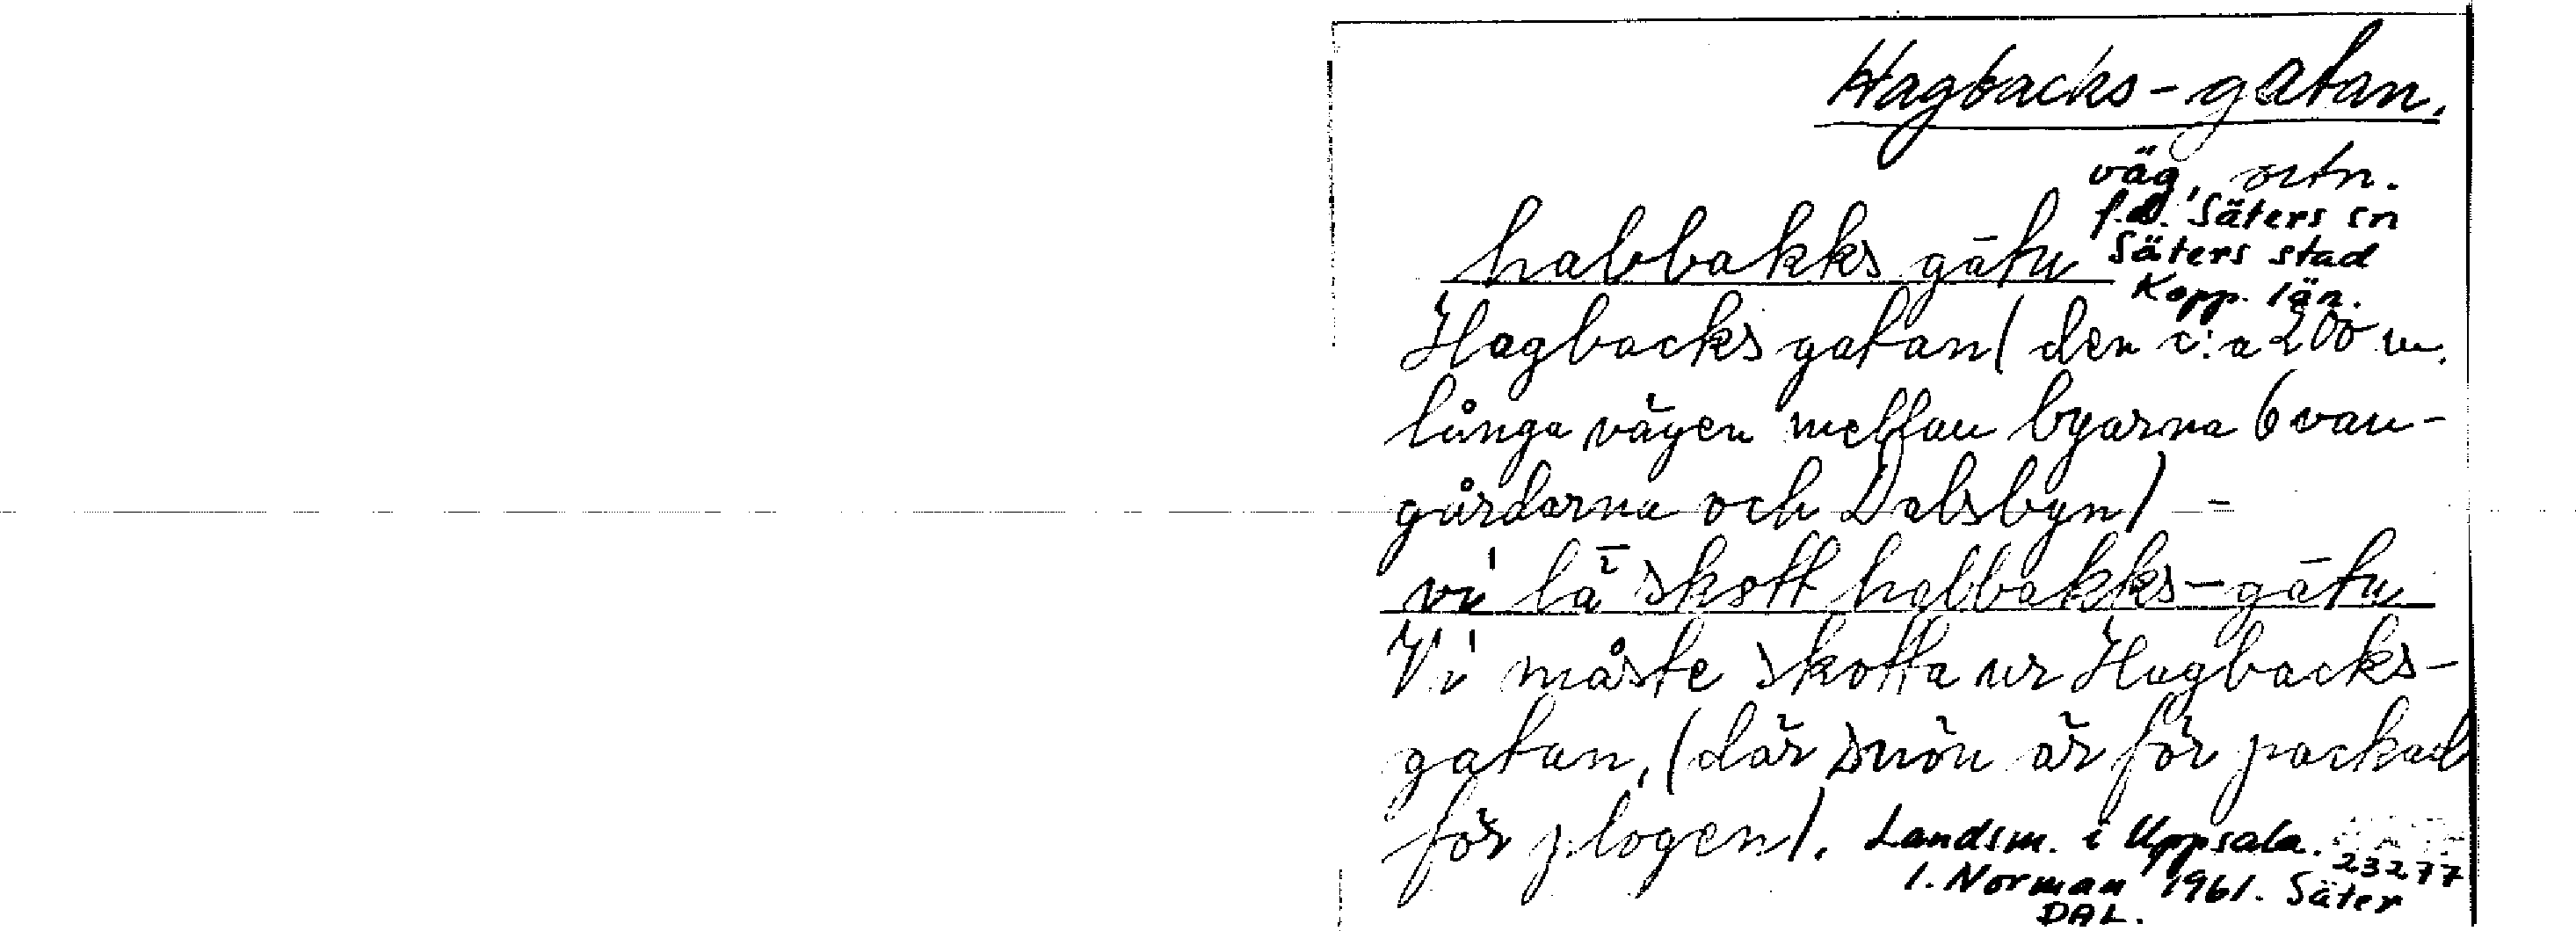 Hagbacks-gatan.
väg, ortn.
f.d. Säters sn
Säters stad
Kopp. län.
habbakks gātu
Hagbacks gatan (den c:a 200 m.
långa vägen mellan byarna Ovan-
gårdarna och Dalsbyn) =
vi lä skott habbakks-gātu
Vi måste skotta ur Hagbacks-
gatan, (där snön är för packad
för plogen).
Landsm. i Uppsala.
23277
I. Norman 1961. Säter
DAL.